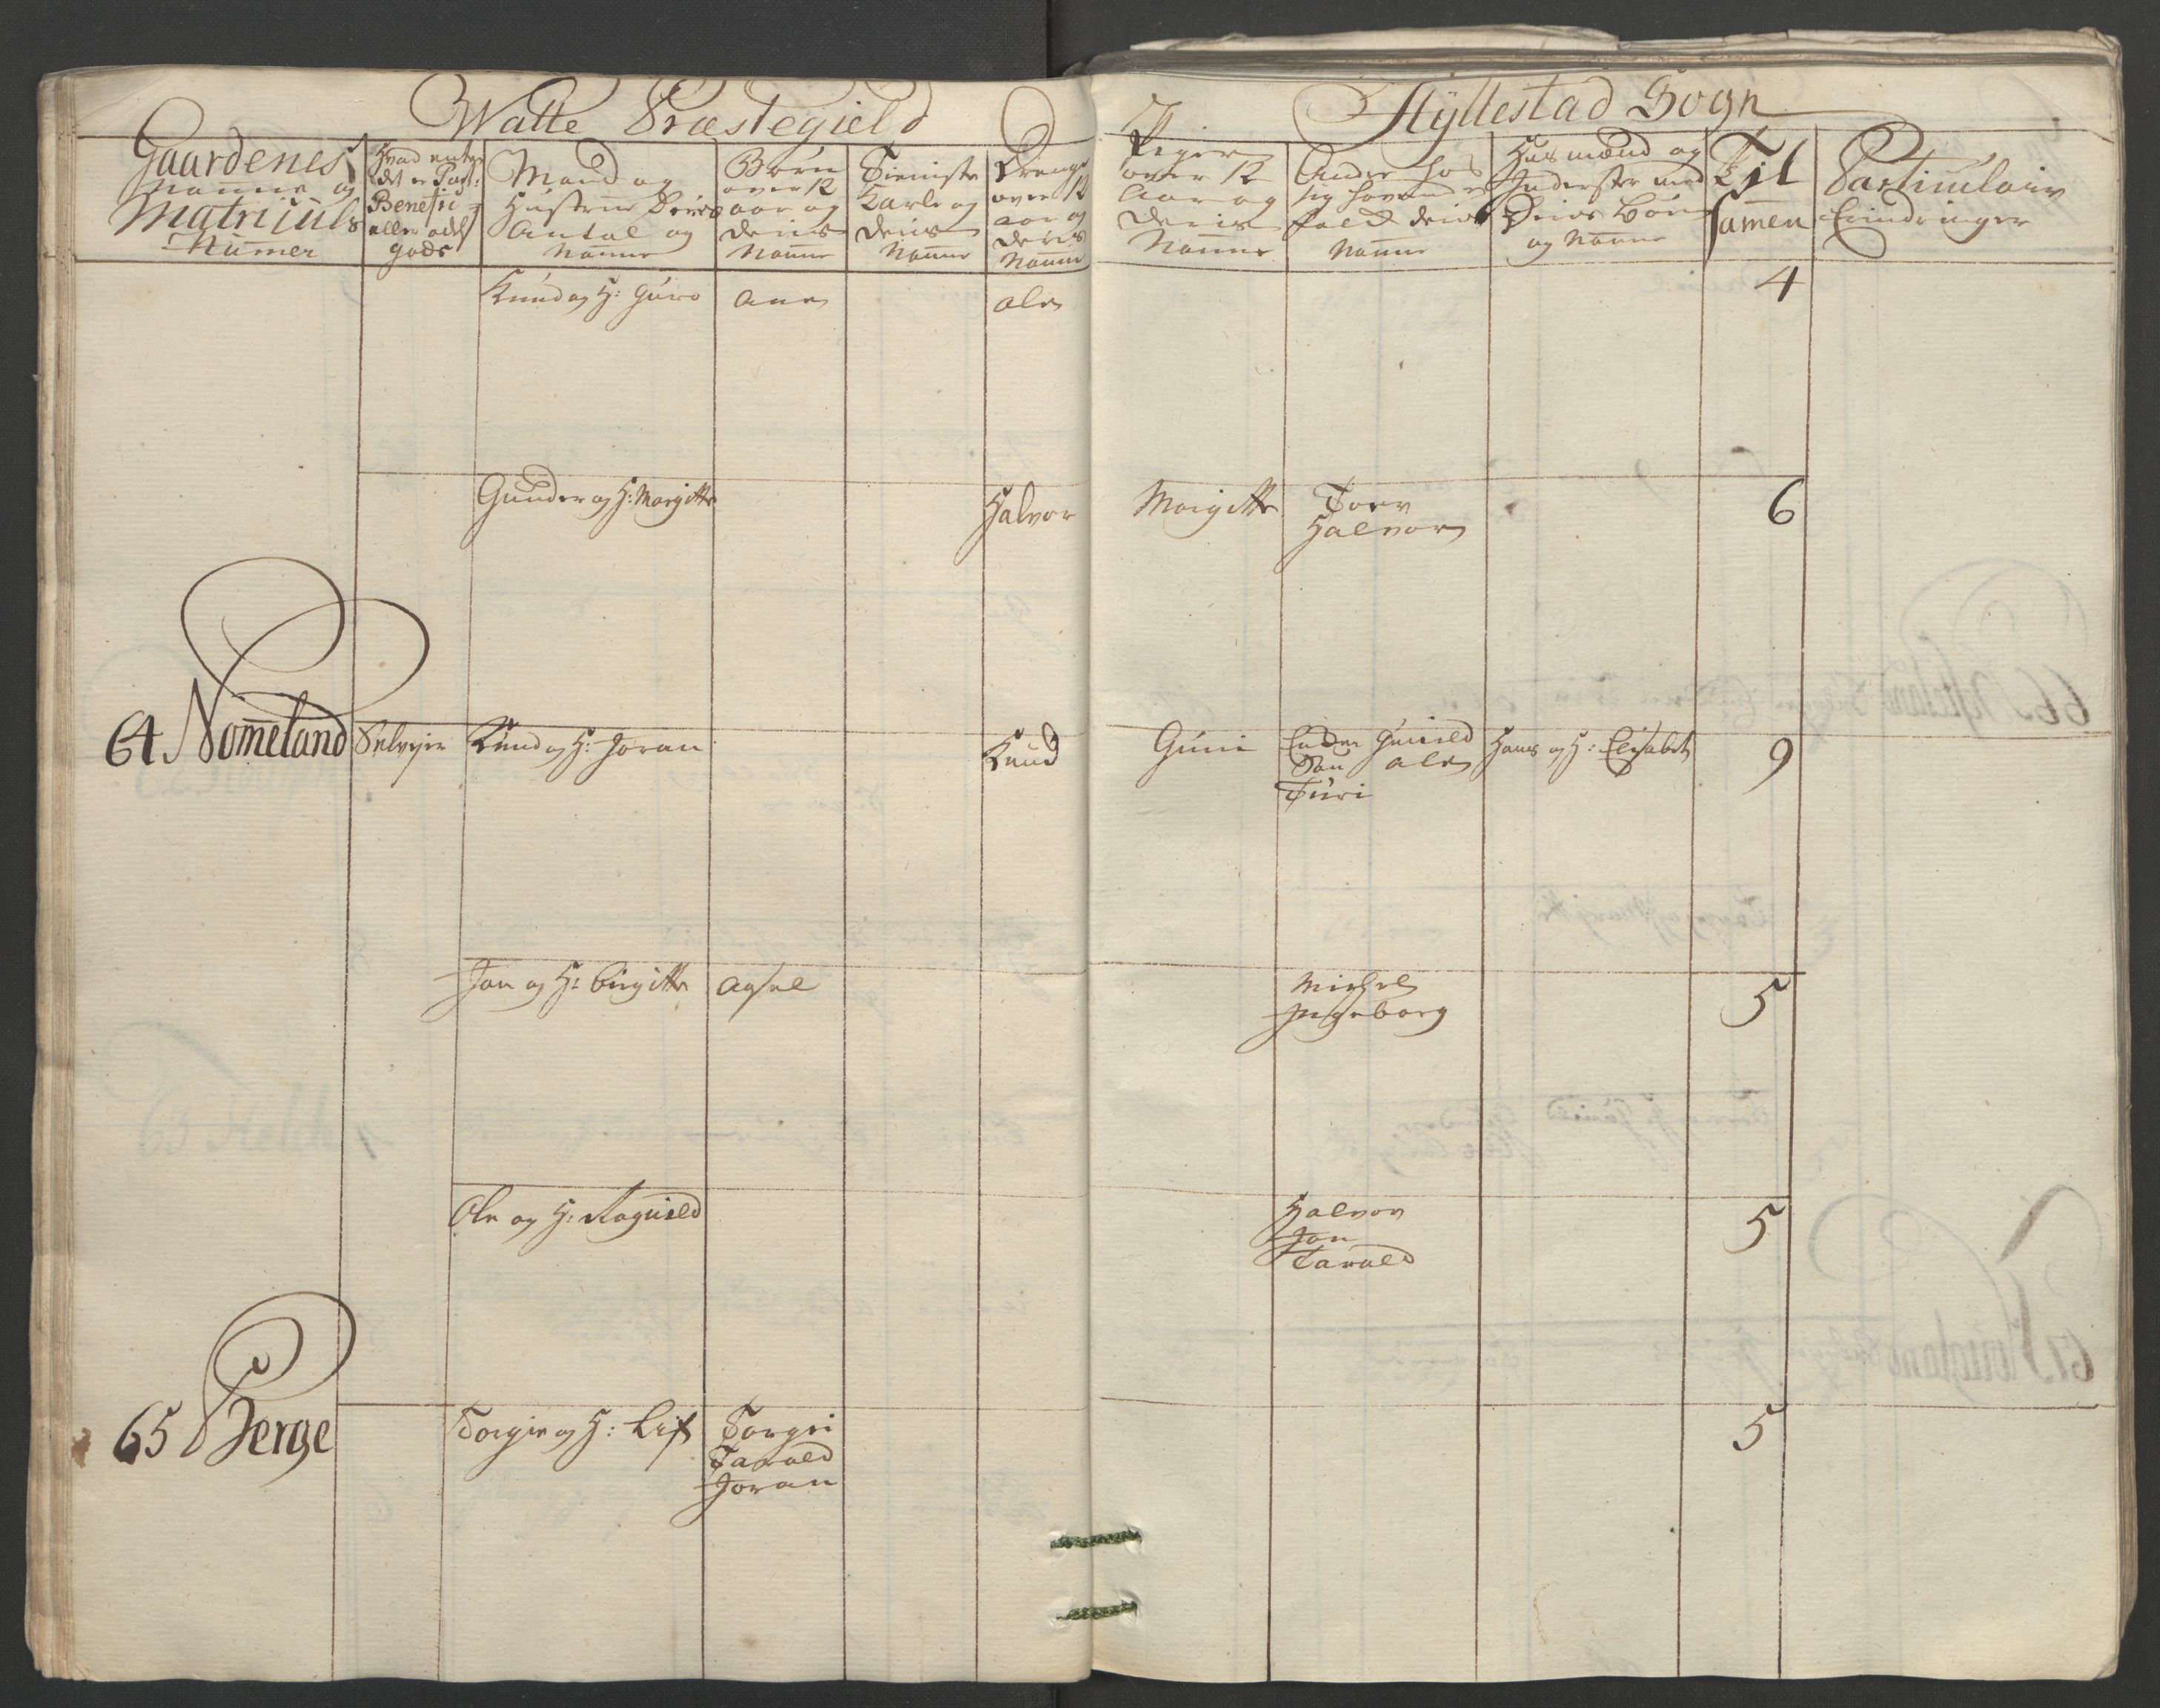 Walle Præstegield
Hyllestad Sogn
Gaardenes
Nanne og
Matriculs
Numer
Hvad enten
det er
Benefici
eller odels
gods
Mand og
Hustrue Deres
Antal og
Nanne
Børn
over 12
aar og
deris
Nanne
Tieniste
Karle og
deris
Nanne
Drenge
over 12
aar og
deris
Nanne
Piger
over 12
Aar og
Deris
Nanne
Andre hos
sig havende
folk deris
Nanne
Husmænd og
Inderster med
Deris Børn
og Nanne
Til
samen
Particulair
Erindringer
Knud og H: Guro Ane Ole 4
Gunder og H: Margitte Halvor Margitte Torv 6
Halvor
64 Nomeland Selvejer Knud og H: Joran Knud Guni Gunild Hans og H: Elisabet 9
Ole
Turi
Jon og H: Birgitte Aasel Michel 5
Ingeborg
Ole og H: Ragnild Halvor 5
Jon
Tarald
65 Berge Torgie og H: Lif Torgri 5
Tarald
Joran